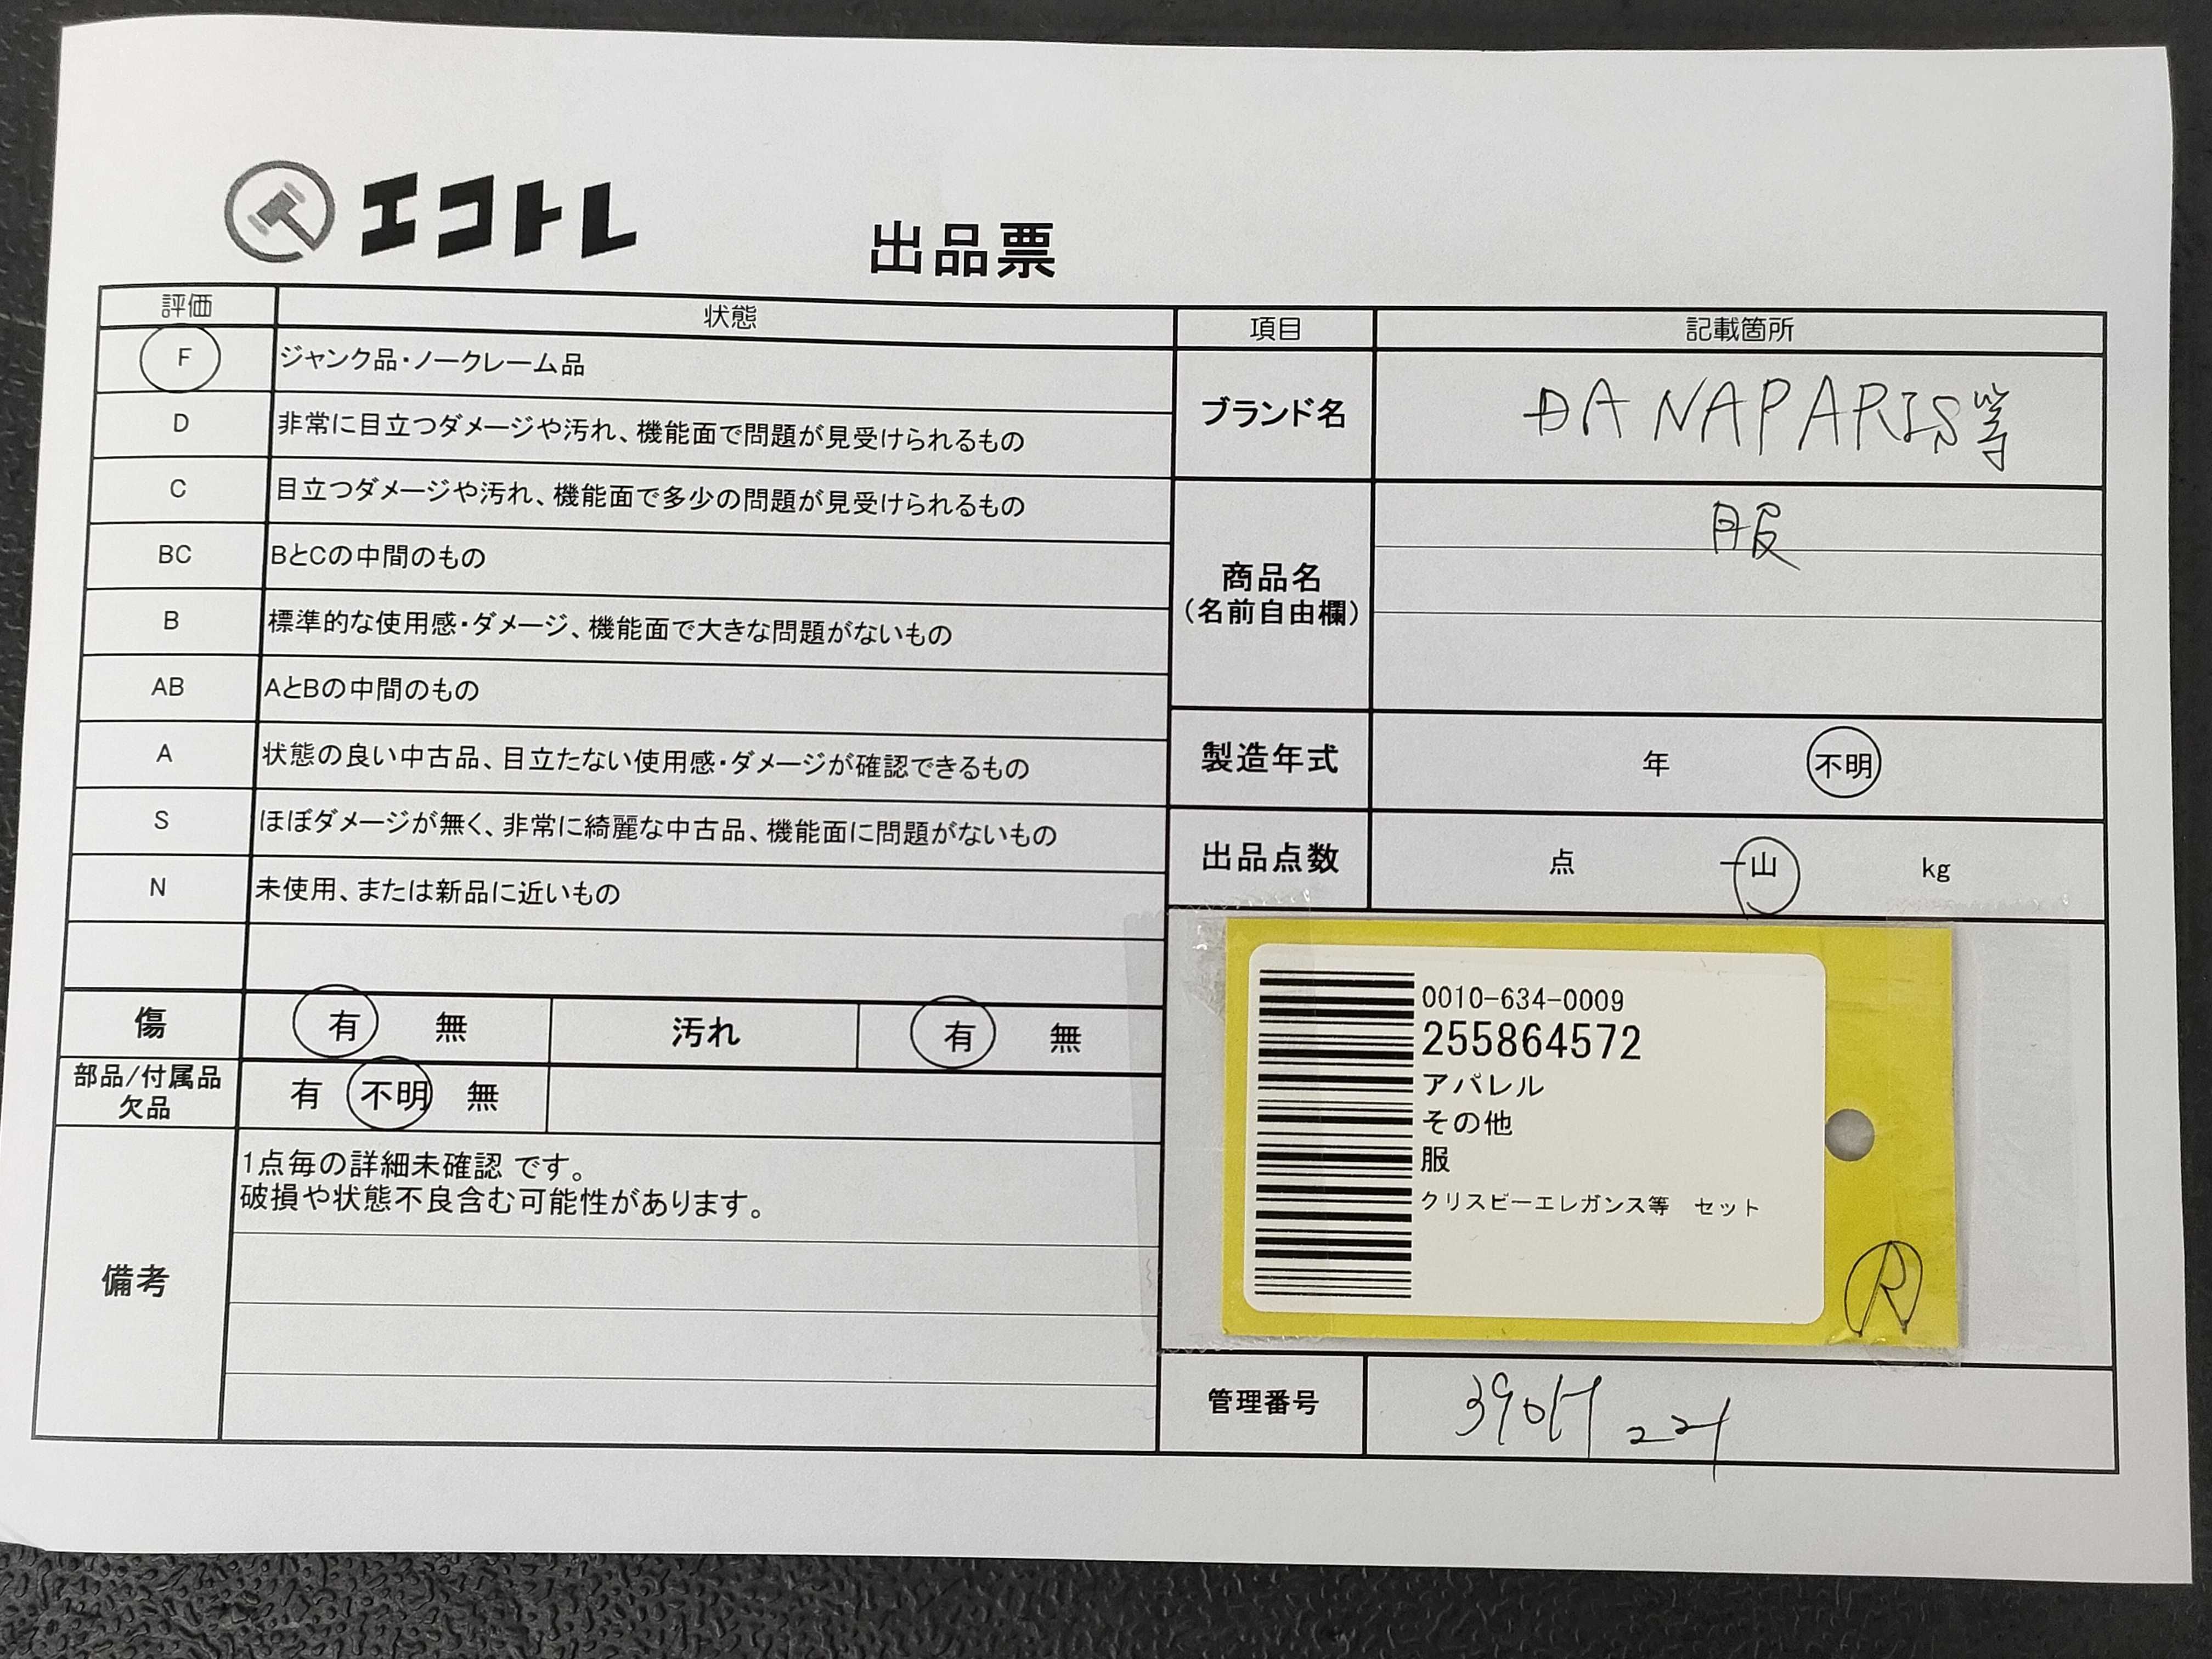 エコトレ
出品票
評価 状態
F ジャンク品・ノークレーム品
D 非常に目立つダメージや汚れ、機能面で問題が見受けられるもの
C 目立つダメージや汚れ、機能面で多少の問題が見受けられるもの
BC BとCの中間のもの
B 標準的な使用感・ダメージ、機能面で大きな問題がないもの
AB AとBの中間のもの
A 状態の良い中古品、目立たない使用感・ダメージが確認できるもの
S ほぼダメージが無く、非常に綺麗な中古品、機能面に問題がないもの
N 未使用、または新品に近いもの
傷 有 無 汚れ 有 無
部品/付属品
欠品 有 不明 無
備考
1点毎の詳細未確認 です。
破損や状態不良含む可能性があります。
項目 記載箇所
ブランド名 DANAPARIS等
商品名
(名前自由欄)
服
製造年式 年 不明
出品点数 点 一山 kg
0010-634-0009
255864572
アパレル
その他
服
クリスビーエレガンス等 セット
R
管理番号